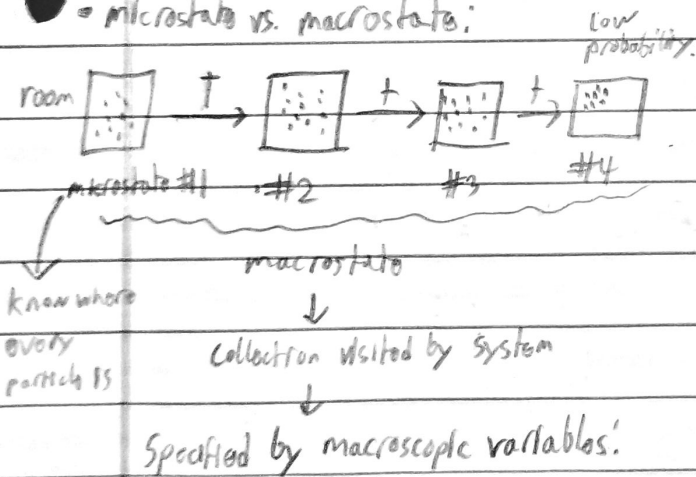 • microstate vs. macrostate:
low
probability.
room
t
t
t
microstate #1
#2
#3
#4
macrostate
know where
every
particle is
collection visited by system
Specified by macroscopic variables: